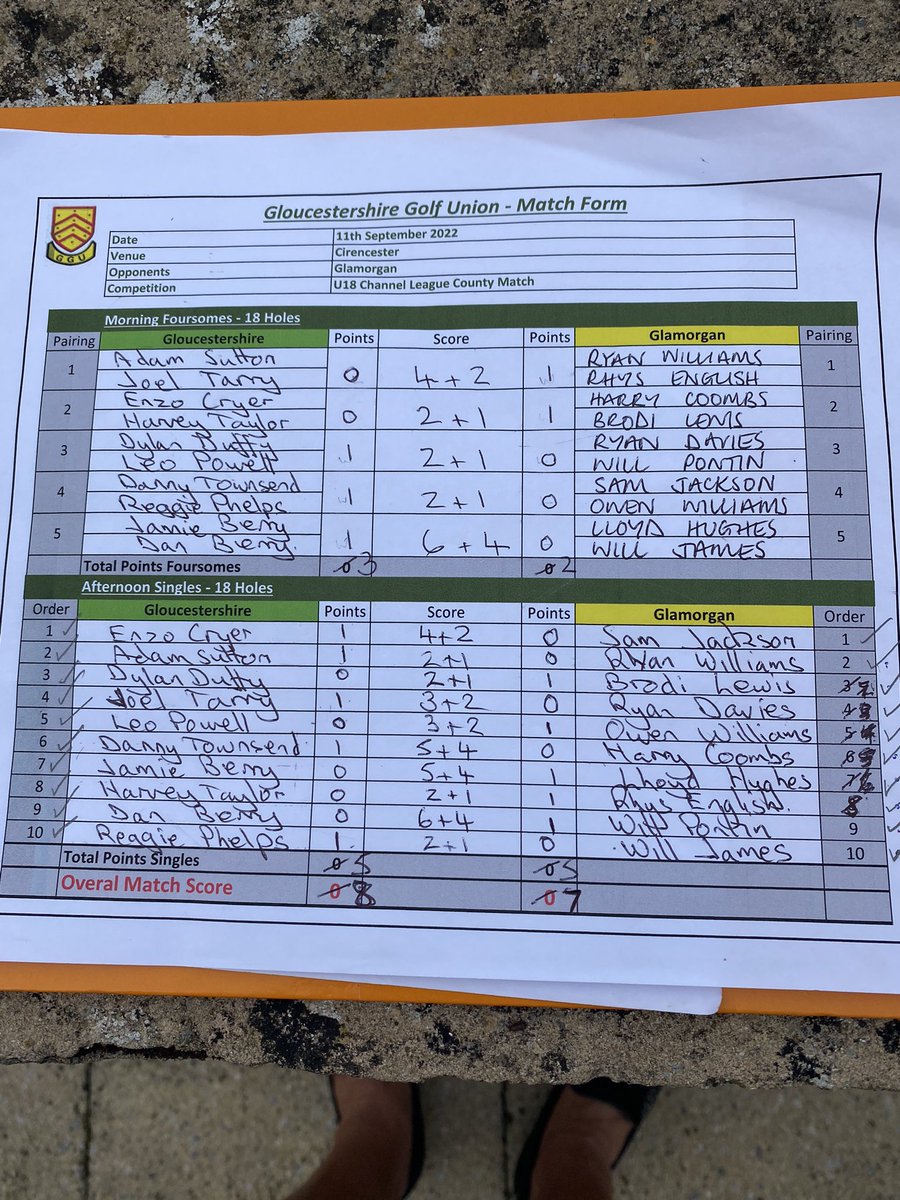 GGU
Gloucestershire Golf Union - Match Form
Date 11th September 2022
Venue Cirencester
Opponents Glamorgan
Competition U18 Channel League County Match
Morning Foursomes - 18 Holes
Pairing Gloucestershire Points Score Points Glamorgan Pairing
Adam Sutton RYAN WILLIAMS
1 0 4+2 1 1
Joel Tarry RHYS ENGLISH
Enzo Cryer HARRY COOMBS
2 0 2+1 1 2
Harvey Taylor BRODI LEWIS
Dylan Duffy RYAN DAVIES
3 1 2+1 0 3
Leo Powell WILL PONTIN
Danny Townsend SAM JACKSON
4 1 2+1 0 4
Reggie Phelps OWEN WILLIAMS
Jamie Berry LLOYD HUGHES
5 1 6+4 0 5
Dan Berry WILL JAMES
Total Points Foursomes 0 3 0 2
Afternoon Singles - 18 Holes
Order Gloucestershire Points Score Points Glamorgan Order
1 Enzo Cryer 1 4+2 0 Sam Jackson 1
2 Adam Sutton 1 2+1 0 Rhyan Williams 2
3 Dylan Duffy 0 2+1 1 Brodi Lewis 3
4 Joel Tarry 1 3+2 0 Ryan Davies 4
5 Leo Powell 0 3+2 1 Owen Williams 5
6 Danny Townsend 1 5+4 0 Harry Coombs 6
7 Jamie Berry 0 5+4 1 Lloyd Hughes 7
8 Harvey Taylor 0 2+1 1 Rhys English. 8
9 Dan Berry 0 6+4 1 Will Pontin 9
10 Reggie Phelps 1 2+1 0 Will James 10
Total Points Singles 0 5 0 5
Overal Match Score 0 8 0 7